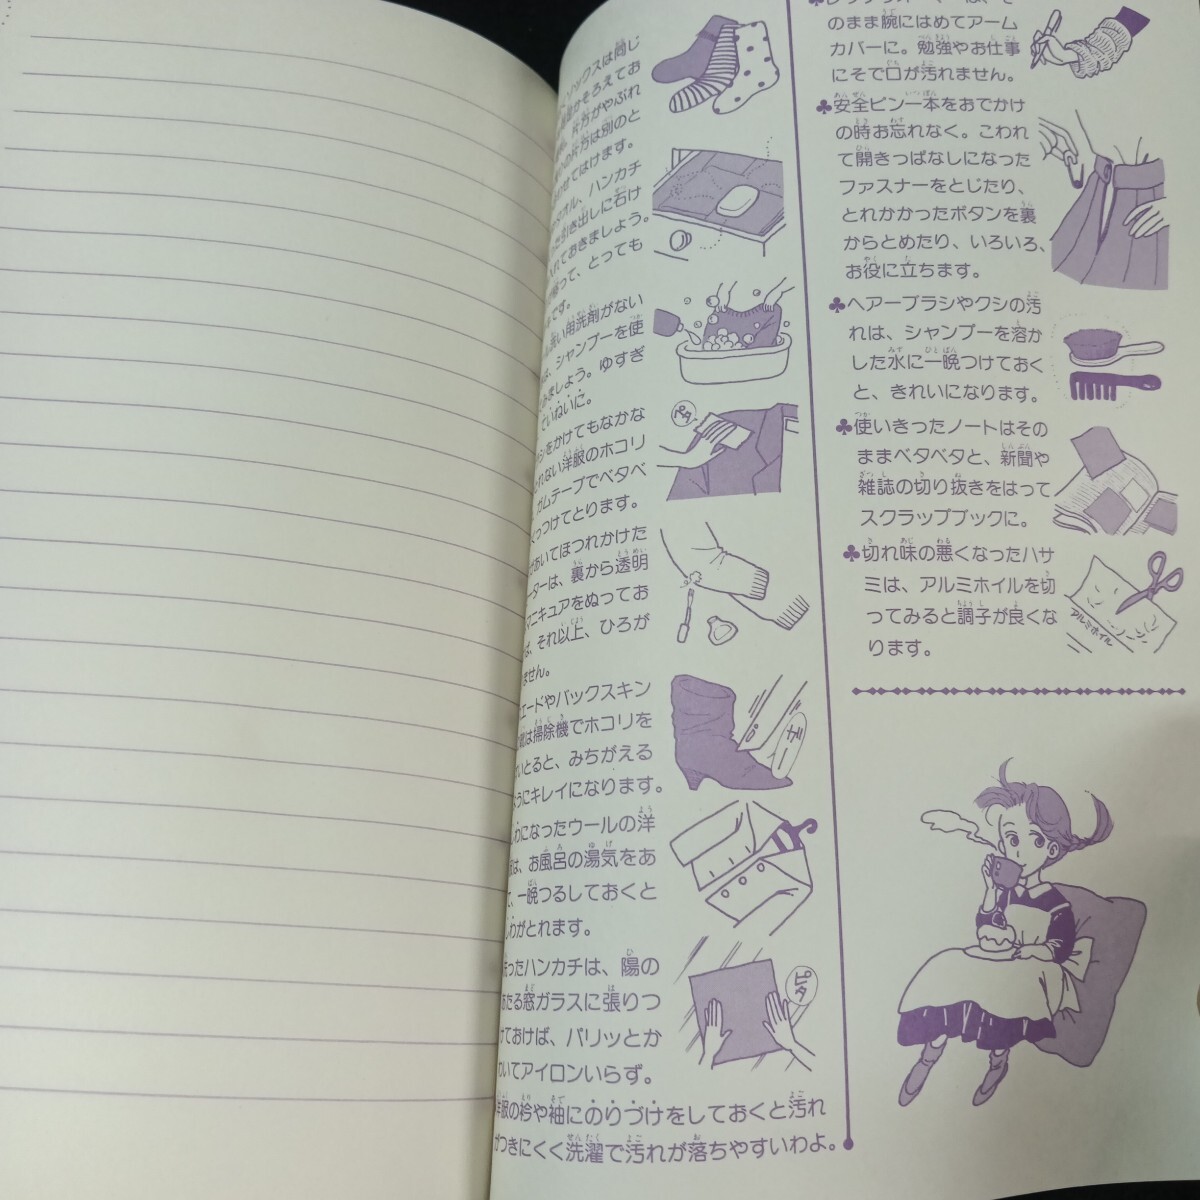 ソックスは同じ
そろえてお
片方がやぶれ
の片方は別のと
わせてはけます。
オル、ハンカチ
引き出しに石け
れておきましょう。
って、とっても
です。
洗い用洗剤がない
は、シャンプーを使
みましょう。ゆすぎ
ていねいに。
シをかけてもなかな
れない洋服のホコリ
ガムテープでベタベ
っつけてとります。
あいてほつれかけた
ーターは、裏から透明
マニキュアをぬってお
ば、それ以上、ひろが
ません。
エードやバックスキン
靴は掃除機でホコリを
いとると、みちがえる
ようにキレイになります。
しわになったウールの洋
服は、お風呂の湯気をあ
て、一晩つるしておくと
しわがとれます。
洗ったハンカチは、陽の
あたる窓ガラスに張りつ
けておけば、パリッとか
わいてアイロンいらず。
洋服の衿や袖にのりづけをしておくと汚れ
がつきにくく洗濯で汚れが落ちやすいわよ。
ペタ
チー
ピタ
のまま腕にはめてアーム
カバーに。勉強やお仕事
にそで口が汚れません。
♣安全ピン一本をおでかけ
の時お忘れなく。こわれ
て開きっぱなしになった
ファスナーをとじたり、
とれかかったボタンを裏
からとめたり、いろいろ、
お役に立ちます。
♣ヘアーブラシやクシの汚
れは、シャンプーを溶か
した水に一晩つけておく
と、きれいになります。
♣使いきったノートはその
ままベタベタと、新聞や
雑誌の切り抜きをはって
スクラップブックに。
♣切れ味の悪くなったハサ
ミは、アルミホイルを切
ってみると調子が良くな
ります。
アルミホイル